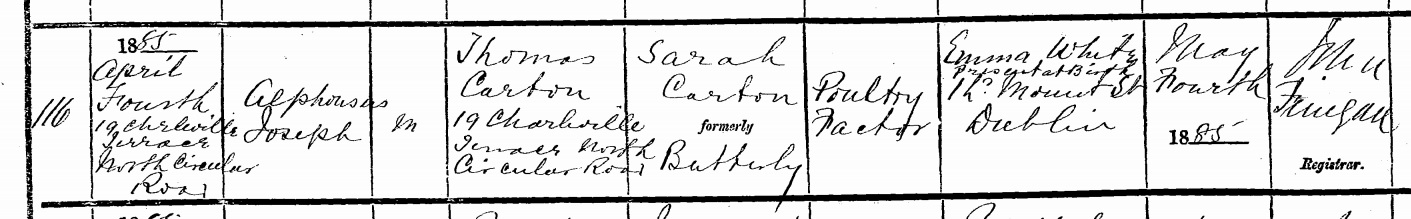 116
1885
April
Fourth
19 Charleville
Terrace
North Circular
Road
Alphonsus
Joseph
M
Thomas
Carton
19 Charleville
Terrace North
Circular Road
Sarah
Carton
formerly
Butterly
Poultry
Factor
Emma White
Present at Birth
Mount St
Dublin
May
Fourth
1885
John
Finegan
Registrar.